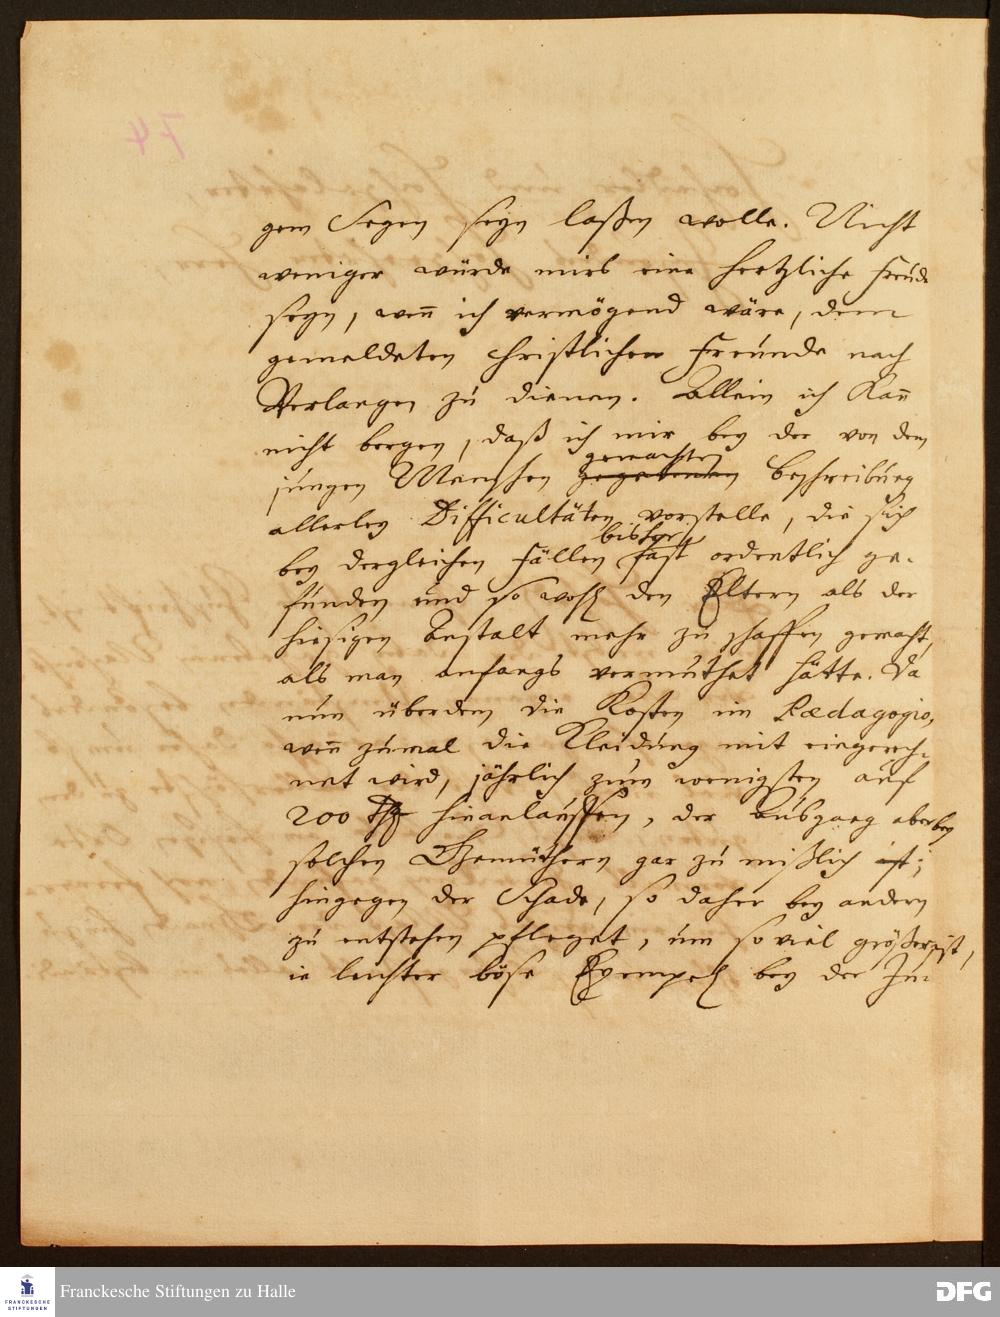 gem Segen seyn laßen wolle. Nicht
weniger würde mirs eine hertzliche Freude
seyn, weñ ich vermögend wäre, dem
gemeldeten christlichen Freunde nach
Verlangen zu dienen. Allein ich kañ
nicht bergen, daß ich mir bey der von dem
gemachten
jungen Menschen gegebenen Beschreibung
allerley Difficultäten vorstelle, die sich
bisher
bey dergleichen Fällen fast ordentlich ge-
funden und so wohl den Eltern als der
hiesigen Anstalt mehr zu schaffen gemacht,
als man anfangs vermuthet hätte. Da
nun überdem die Kosten im Pædagogio,
weñ zumal die Kleidung mit eingerech-
net wird, jährlich zum wenigsten auf
200 Thlr hinanlauffen, der Ausgang aber bey
solchen Gemüthern gar zu mißlich ist;
hingegen der Schade, so daher bey andern
zu entstehen pfleget, um so viel größer ist,
ie leichter böse Exempel bey der Ju-
74
Franckesche Stiftungen zu Halle
FRANCKESCHE
STIFTUNGEN
DFG